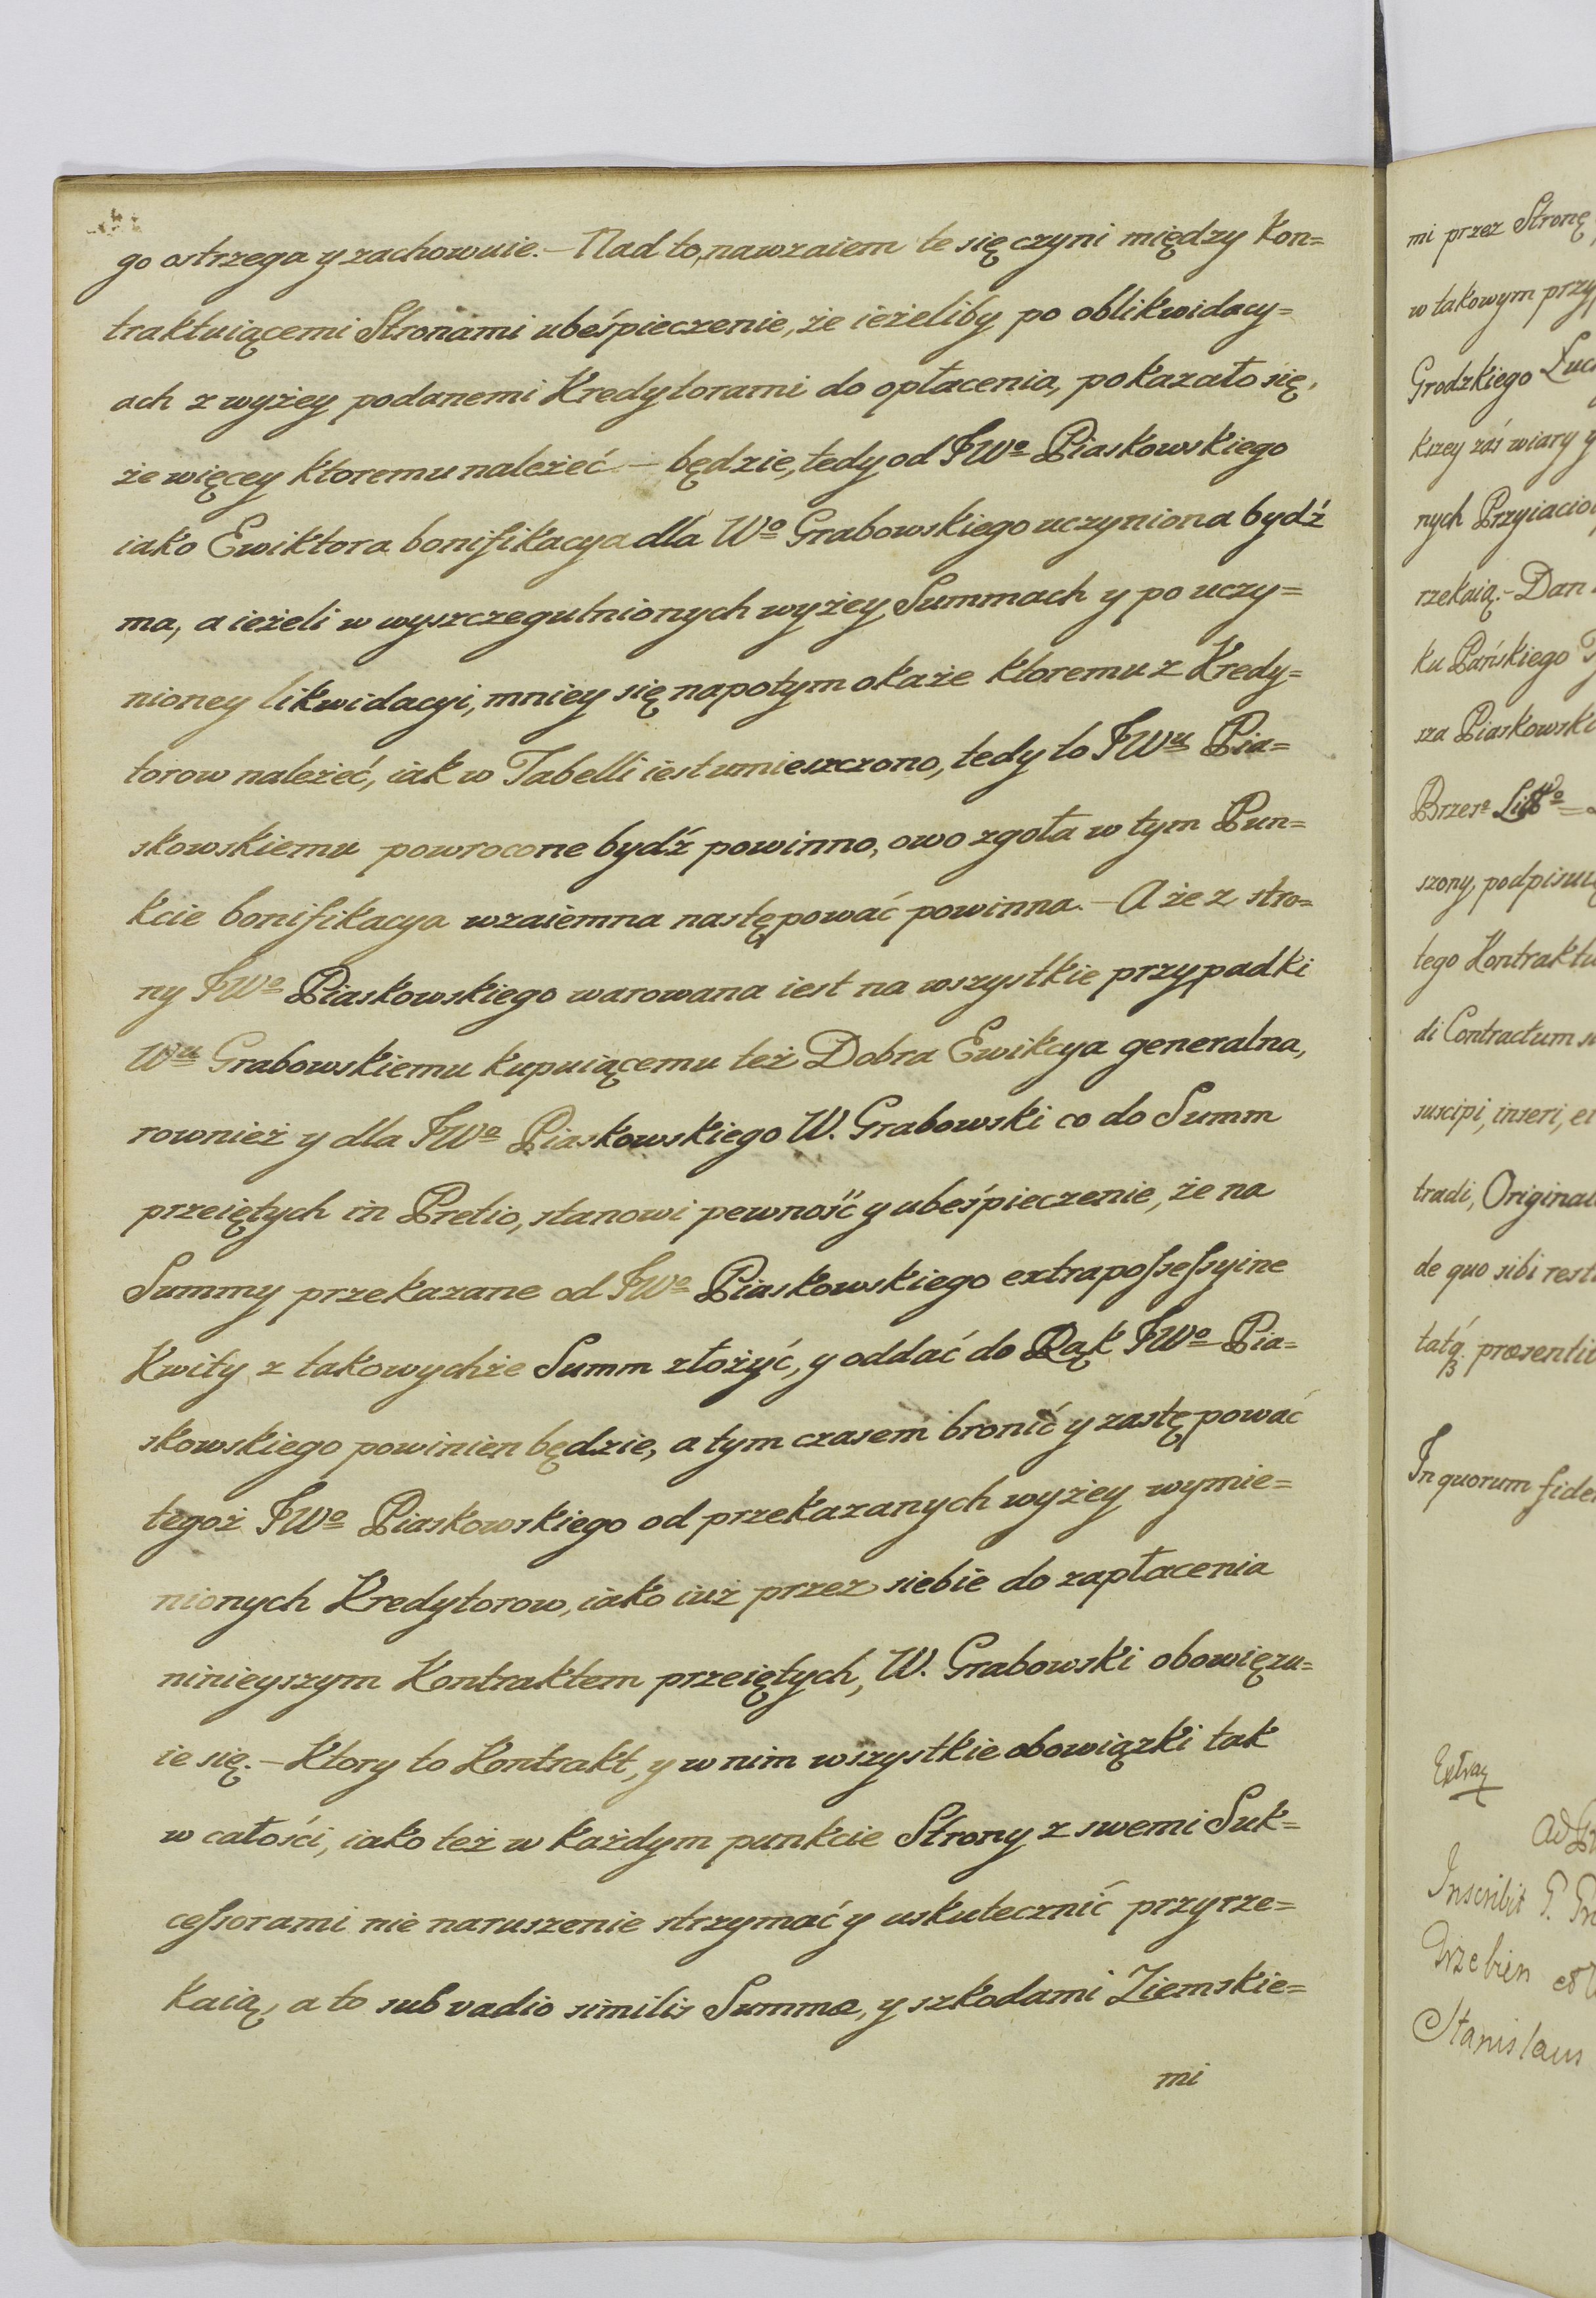 go ostrzega y zachowuie. – Nad to, nawzaiem te się czyni między Kon=
traktuiącemi Stronami ubeśpieczenie, że ieżeliby po oblikwidacy=
ach z wyżey podanemi Kredytorami do opłacenia, pokazało się,
że więcey ktoremu należeć – będzie, tedy od JWo Piaskowskiego
iako Ewiktora bonifikacya dla Wo Grabowskiego uczyniona bydź
ma, a ieżeli w wyszczegulnionych wyżey Summach y po uczy=
nioney likwidacyi, mniey się napotym okaże ktoremu z Kredy=
torow należeć, iak w Tabelli iest umieszczono, tedy to JWu Pia=
skowskiemu powrocone bydź powinno, owo zgoła w tym Pun=
kcie bonifikacya wzaiemna następować powinna. – A że z stro=
ny JWo Piaskowskiego warowana iest na wszystkie przypadki
Wu Grabowskiemu kupuiącemu też Dobra Ewikcya generalna,
rownież y dla JWo Piaskowskiego W. Grabowski co do Summ
przeiętych in Pretio, stanowi pewność y ubeśpieczenie, że na
Summy przekazane od JWo Piaskowskiego extrapossessyine
Kwity z takowychże Summ złożyć, y oddać do Rąk JWo Pia=
skowskiego powinien będzie, a tym czasem bronić y zastępować
tegoż JWo Piaskowskiego od przekazanych wyżey wymie=
nionych Kredytorow, iako iuż przez siebie do zapłacenia
ninieyszym Kontraktem przeiętych, W. Grabowski obowięzu=
ie się. – Ktory to Kontrakt, y w nim wszystkie obowiązki tak
w całości, iako też w każdym punkcie Strony z swemi Suk=
cessorami nie naruszenie strzymać y uskutecznić przyrze=
kaią, a to sub vadio similis Summæ, y szkodami Ziemskie=
mi
mi przez Stronę
w takowym przy
Grodzkiego Łuc
kszey zaś wiary y
nych Przyiacioł
rzekaią. – Dan
ku Pańskiego
sza Piaskowski
szony, podpisuią
tego Kontraktu
di Contractum
suscipi, inseri, et
tradi, Original
de quo sibi rest
præsenti
In quorum fide
Inscribit P.
Stanislaus